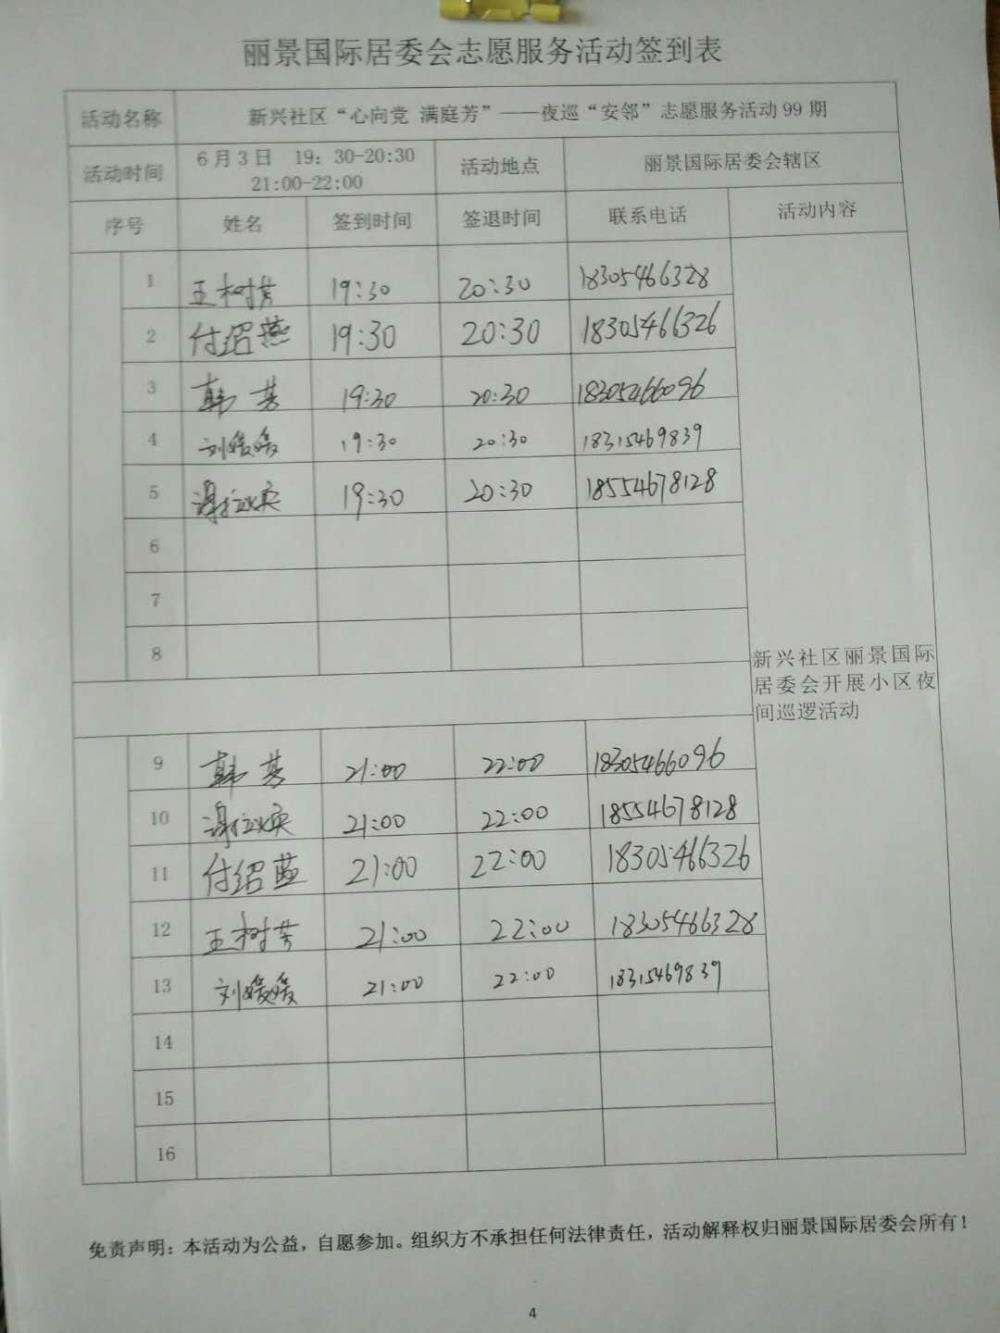 丽景国际居委会志愿服务活动签到表
活动名称 新兴社区“心向党 满庭芳”——夜巡“安邻”志愿服务活动99期
活动时间 6月3日 19：30-20:30 21:00-22:00 活动地点 丽景国际居委会辖区
序号 姓名 签到时间 签退时间 联系电话 活动内容
1 王树芳 19:30 20:30 18305466328
2 付绍燕 19:30 20:30 18305466326
3 韩芳 19:30 20:30 18305466096
4 刘媛媛 19:30 20:30 18315469839
5 谢 19:30 20:30 18554678128
6
7
8
新兴社区丽景国际
居委会开展小区夜
间巡逻活动
9 韩芳 21:00 22:00 18305466096
10 谢 21:00 22:00 18554678128
11 付绍 21:00 22:00 18305466326
12 王树芳 21:00 22:00 18305466328
13 刘媛媛 21:00 22:00 18315469839
14
15
16
免责声明：本活动为公益，自愿参加。组织方不承担任何法律责任，活动解释权归丽景国际居委会所有！
4